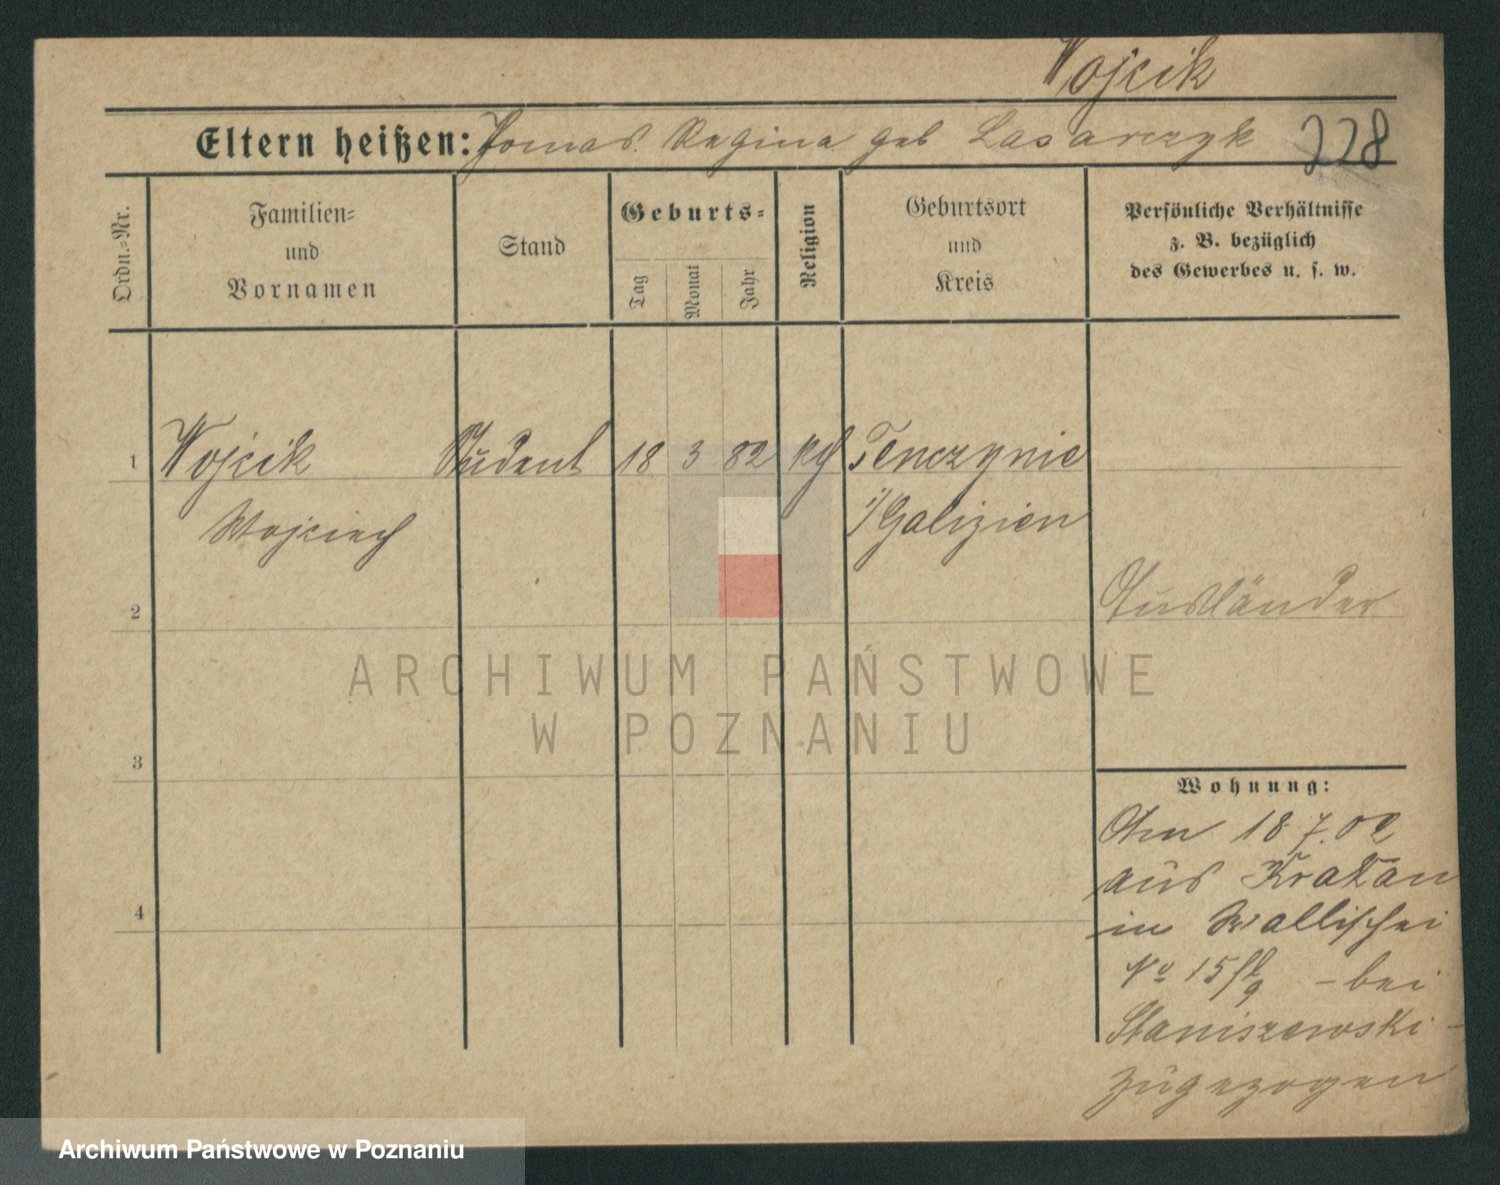 Wojcik
Eltern heißen: Tomas. Regina geb Lasarczyk 228
Ordn.=Nr.
Familien=
und
Vornamen
Stand
Geburts=
Tag
Monat
Jahr
Religion
Geburtsort
und
Kreis
Persönliche Verhältnisse
z. B. bezüglich
des Gewerbes u. s. w.
1 Wojcik Student 18 3 82 kth Tenczynie
Wojciech i/Galizien
2 Ausländer
ARCHIWUM PAŃSTWOWE
W POZNANIU
3
Wohnung:
Am 18.7.02
aus Krakau
in Wallischei
No 15 – bei
Staniszewski –
zugezogen
4
Archiwum Państwowe w Poznaniu